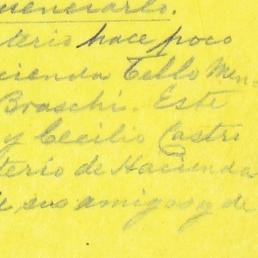 terio hace poco
cienda Tello Men-
Braschi. Este
y Cecilio Castro
terio de Hacienda
de sus amigos y de